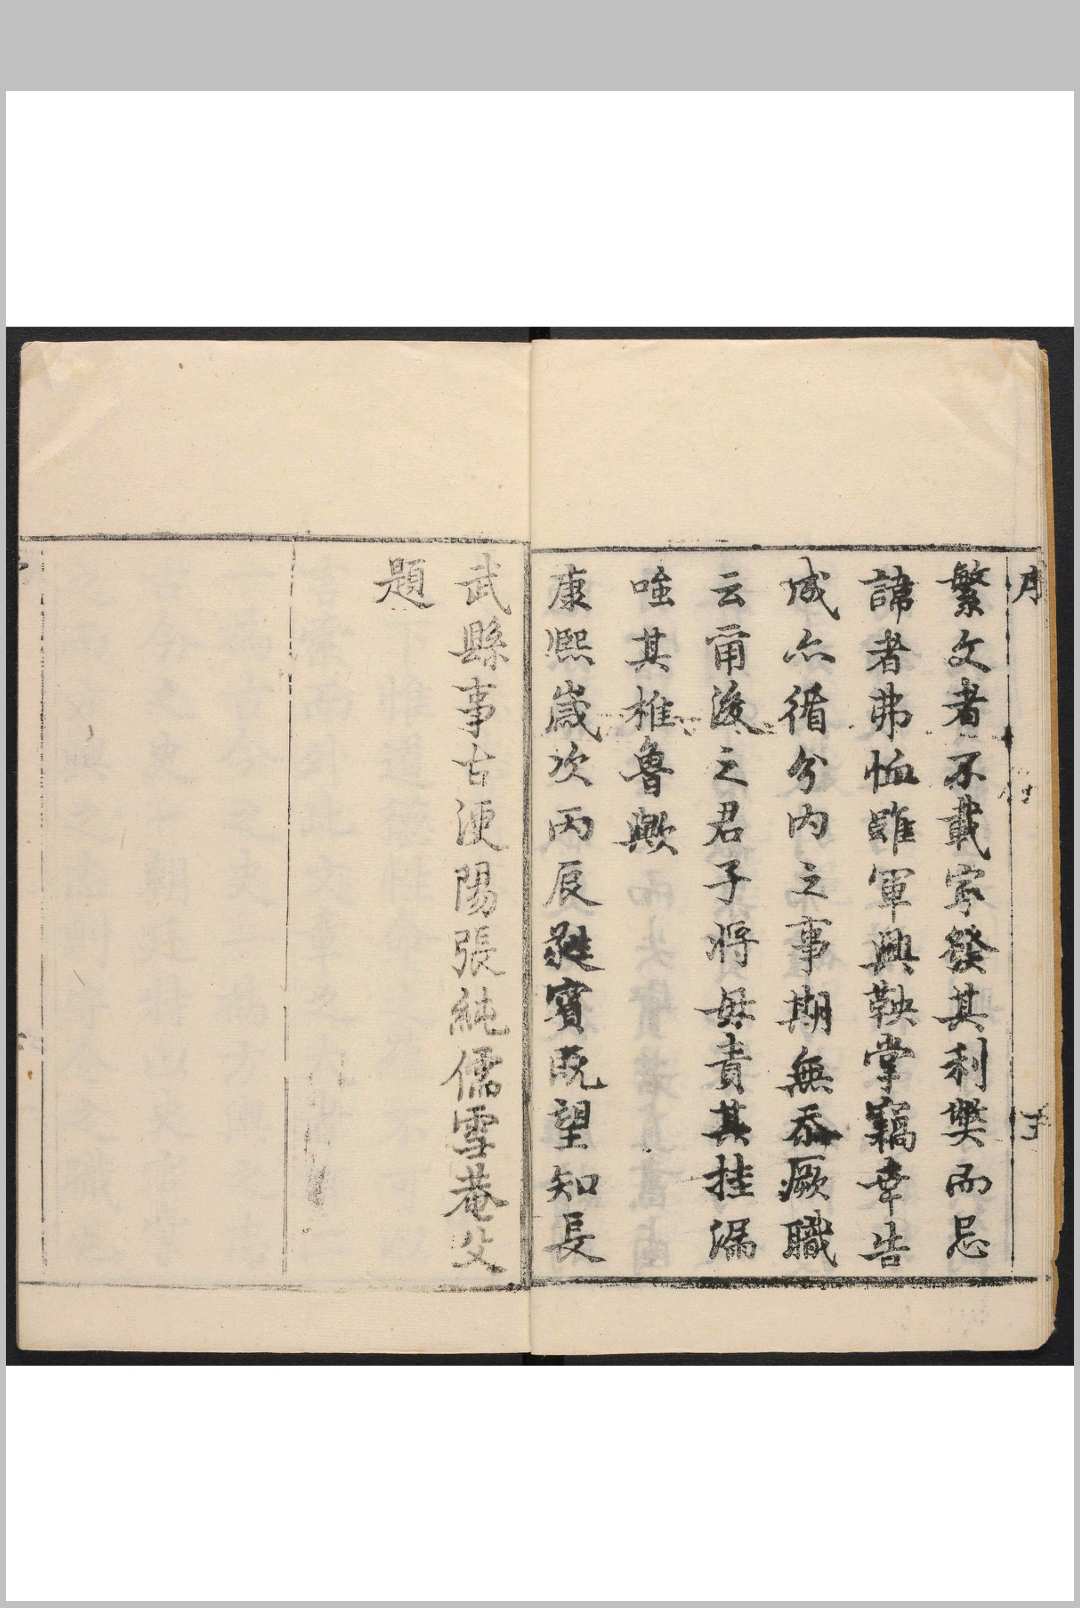 序
繁文者不載寧發其利獘而忌
諱者弗恤雖軍興鞅掌竊幸告
成亦循分內之事期無忝厥職
云爾後之君子將毋責其挂漏
嗤其椎魯歟
康熙歲次丙辰蕤賓既望知長
武縣事古浭陽張純儒雪菴父
題